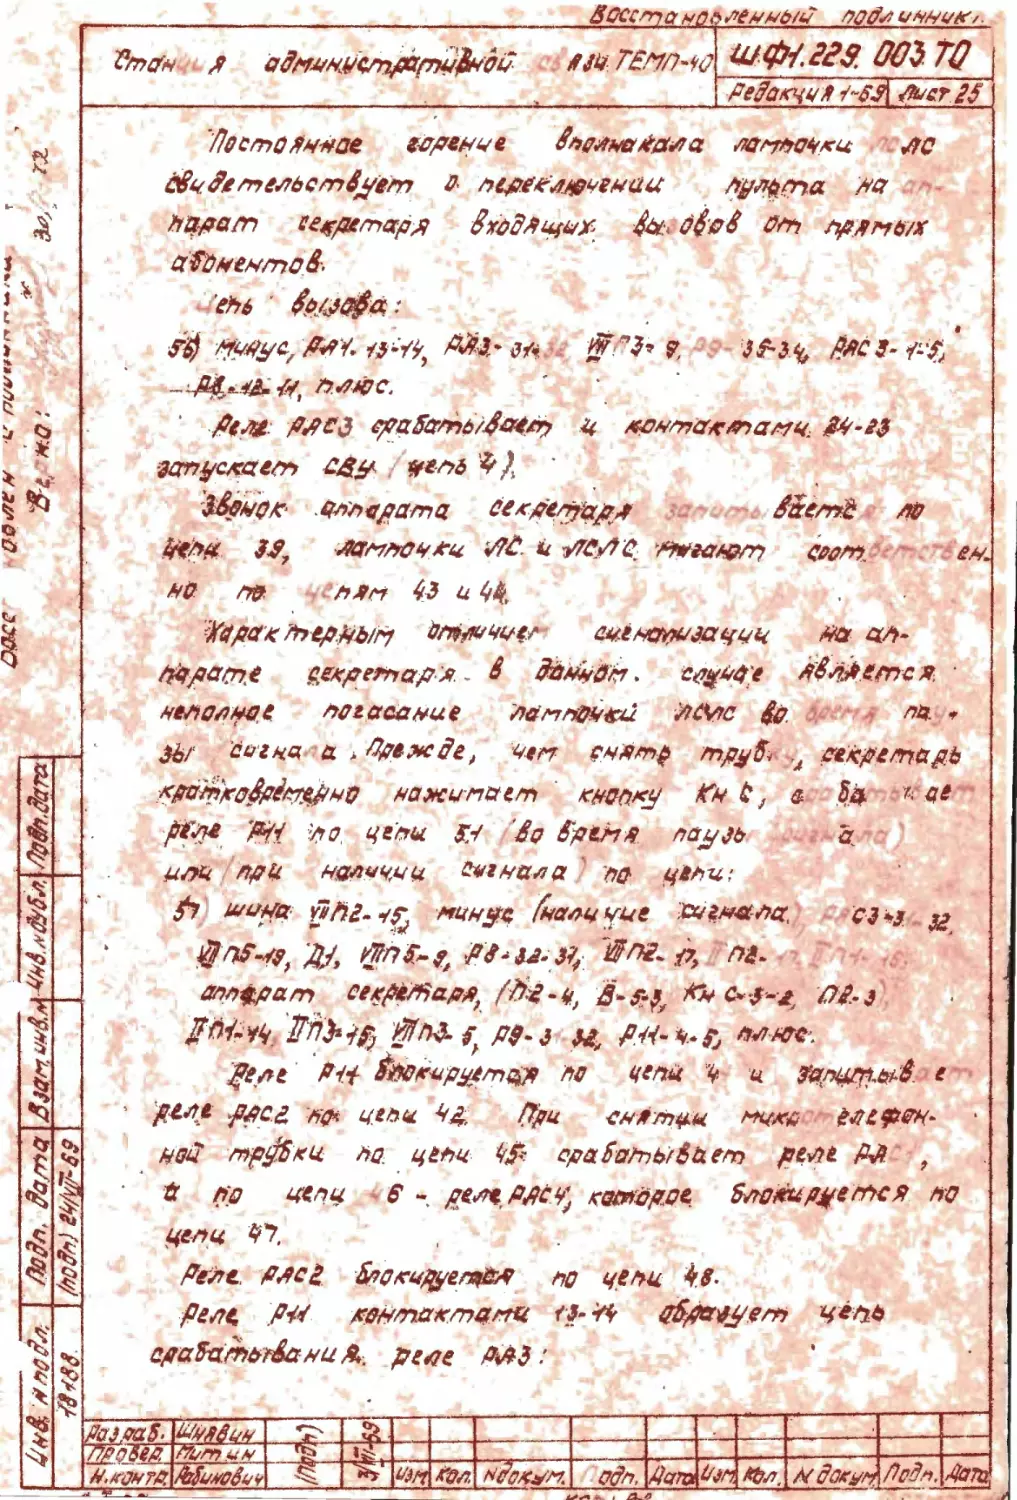 Восстановленный подлинник
административной связи ТЕМП-40
ШФ1.229.003.ТО
Редакция 1-69 Лист 25
Постоянное горение вполнакала лампочки ЛС
свидетельствует о переключении пульта на ап-
парат секретаря входящих вызовов от прямых
абонентов.
вызова:
56) минус, РА1-13-14, РА3-31- VIII П3-9, 35-34, РАС3-1-5,
Р8-12-11, плюс.
Реле РАС3 срабатывает и контактами 24-23
запускает СВУ (цепь 4).
Звонок аппарата секретаря по
цепи 39, лампочки ЛС и ЛСЛС мигают соответствен-
но по цепям 43 и 44.
Характерным отличием сигнализации на ап-
парате секретаря в данном случае является
неполное погасание лампочки ЛСЛС во время пау-
зы сигнала. Прежде, чем снять трубку, секретарь
кратковременно нажимает кнопку КнС, срабатывает
реле Р11 по цепи 51 (во время паузы сигнала)
или (при наличии сигнала) по цепи:
57) шина VIII П2-15, минус (наличие сигнала), РАС3-31-32,
VIII П5-19, Д1, VIII П5-9, Р8-32-31, VIII П2-17, II П2-
аппарат секретаря, (П2-4, В-5-3, КнС-3-2, П2-3),
II П1-14, II П3-15, VIII П3-5, Р9-3 32, Р11-4-5, плюс.
Реле Р11 блокируется по цепи 4 и запитывает
реле РАС2 по цепи 42. При снятии микротелефон-
ной трубки по цепи 45 срабатывает реле
а по цепи 46 - реле РАС4, которое блокируется по
цепи 47.
Реле РАС2 блокируется по цепи 48.
Реле Р11 контактами 13-14 образует цепь
срабатывания реле РА3:
Инв. N подл.
18188
Подп. дата
(подп) 24/VII-69
Взам. инв. N
Инв. N дубл.
Подп. дата
Верно:
Разраб. Шнявин (Подп) 3/VII-69
Провер. Питин
Н.контр. Рабинович
Изм Кол. N докум. Подп. Дата Изм. Кол. N докум. Подп. Дата